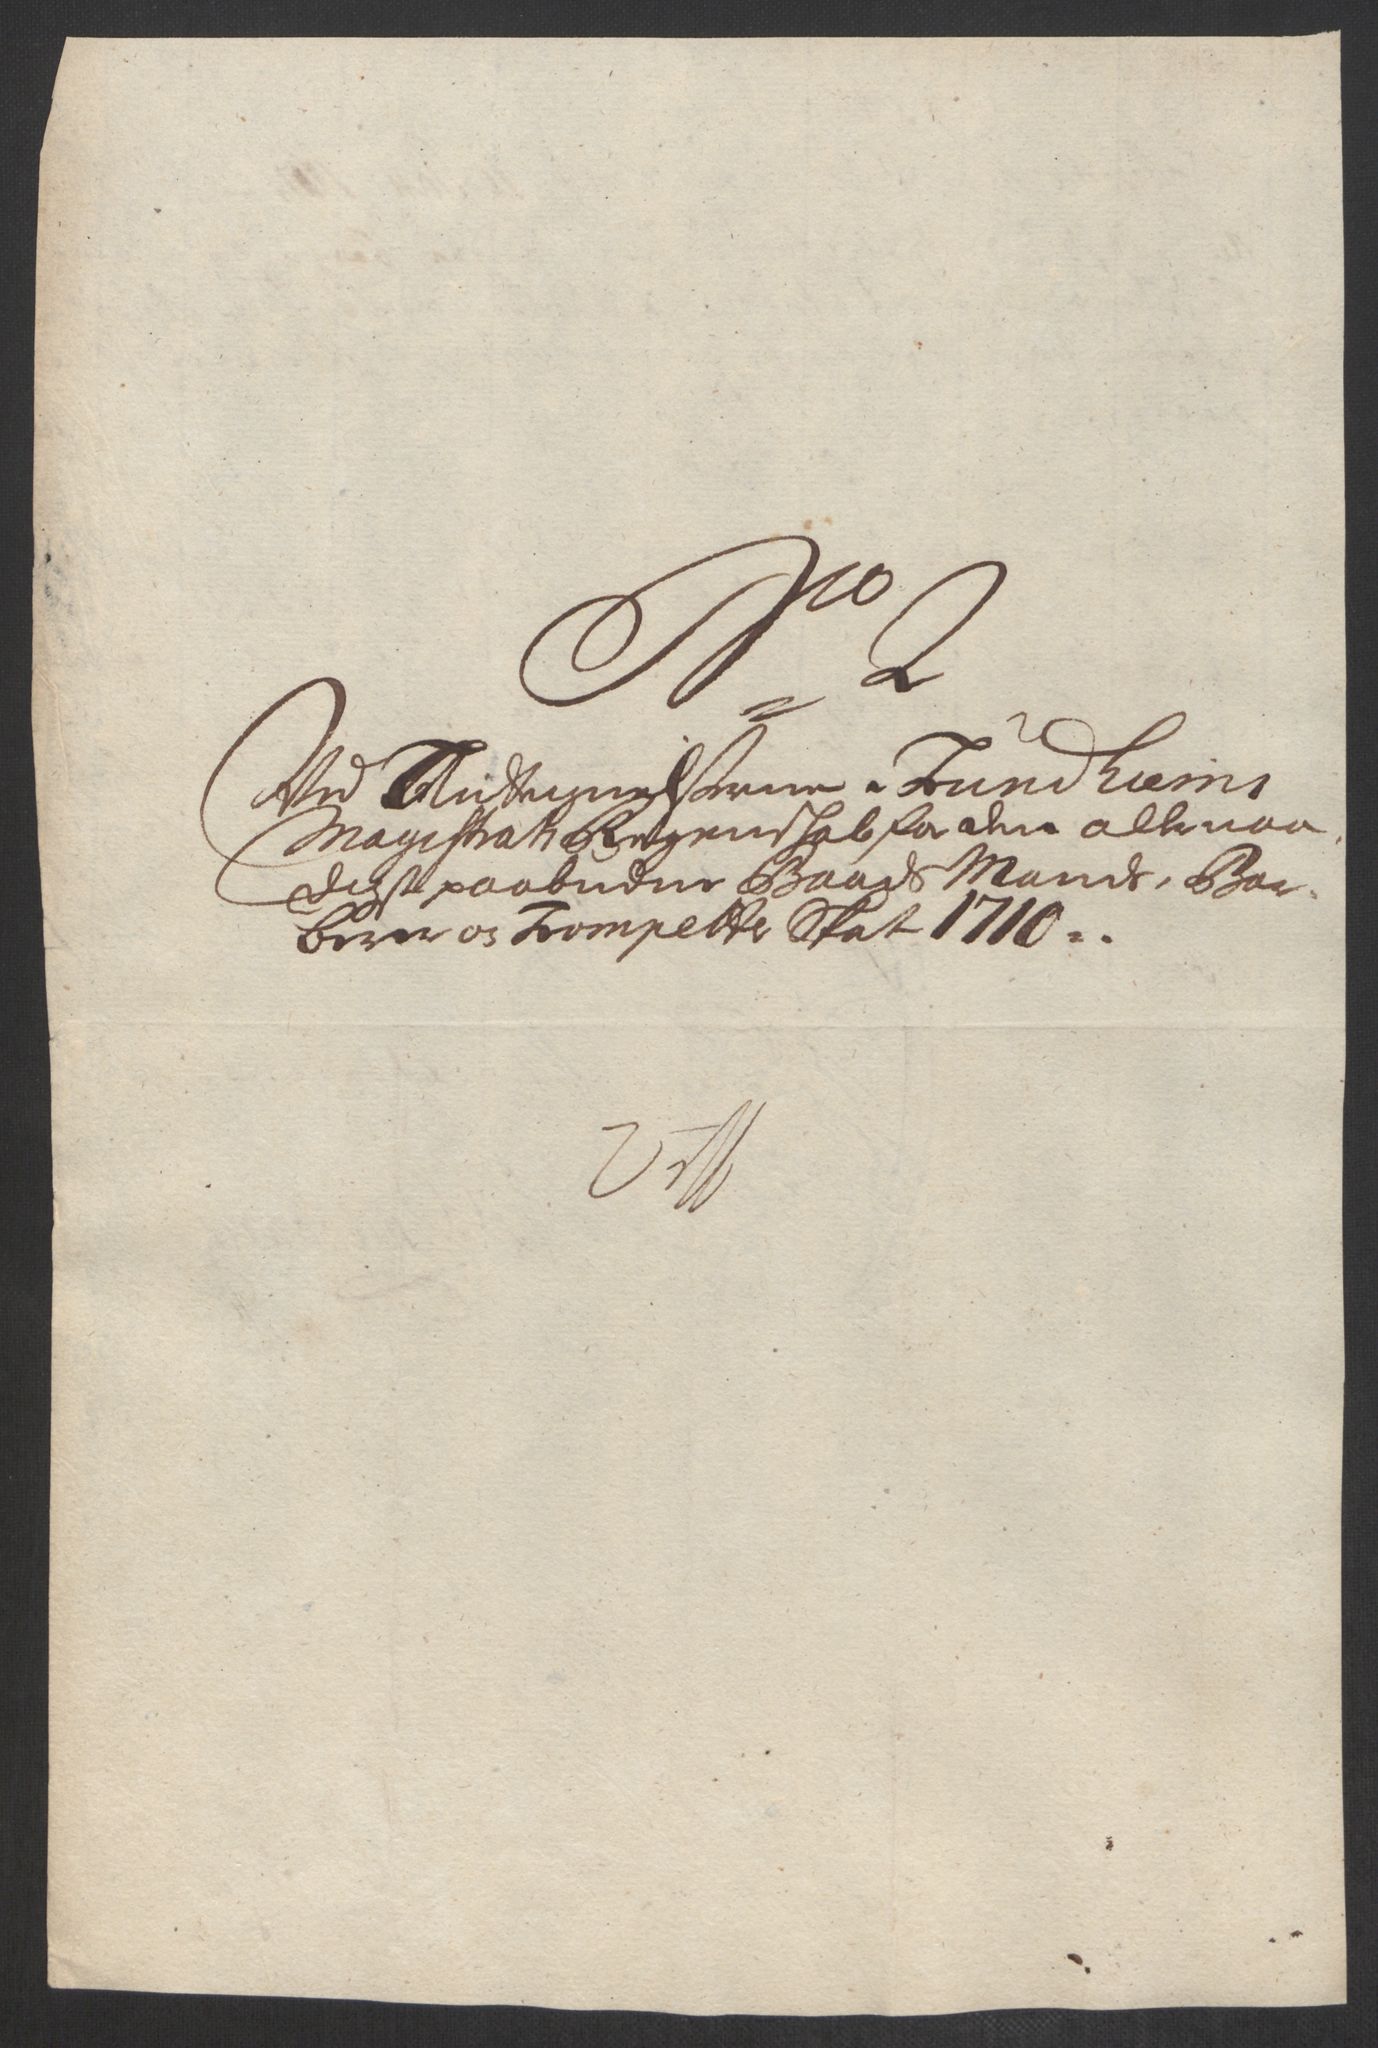 No 2
Ved Antegnelserne i Trundhæims
Magistrats Regenskab for den allernaa,
digst paabudne Baads Mands, Bar-
berer og Trompetter Skat 1710 ..